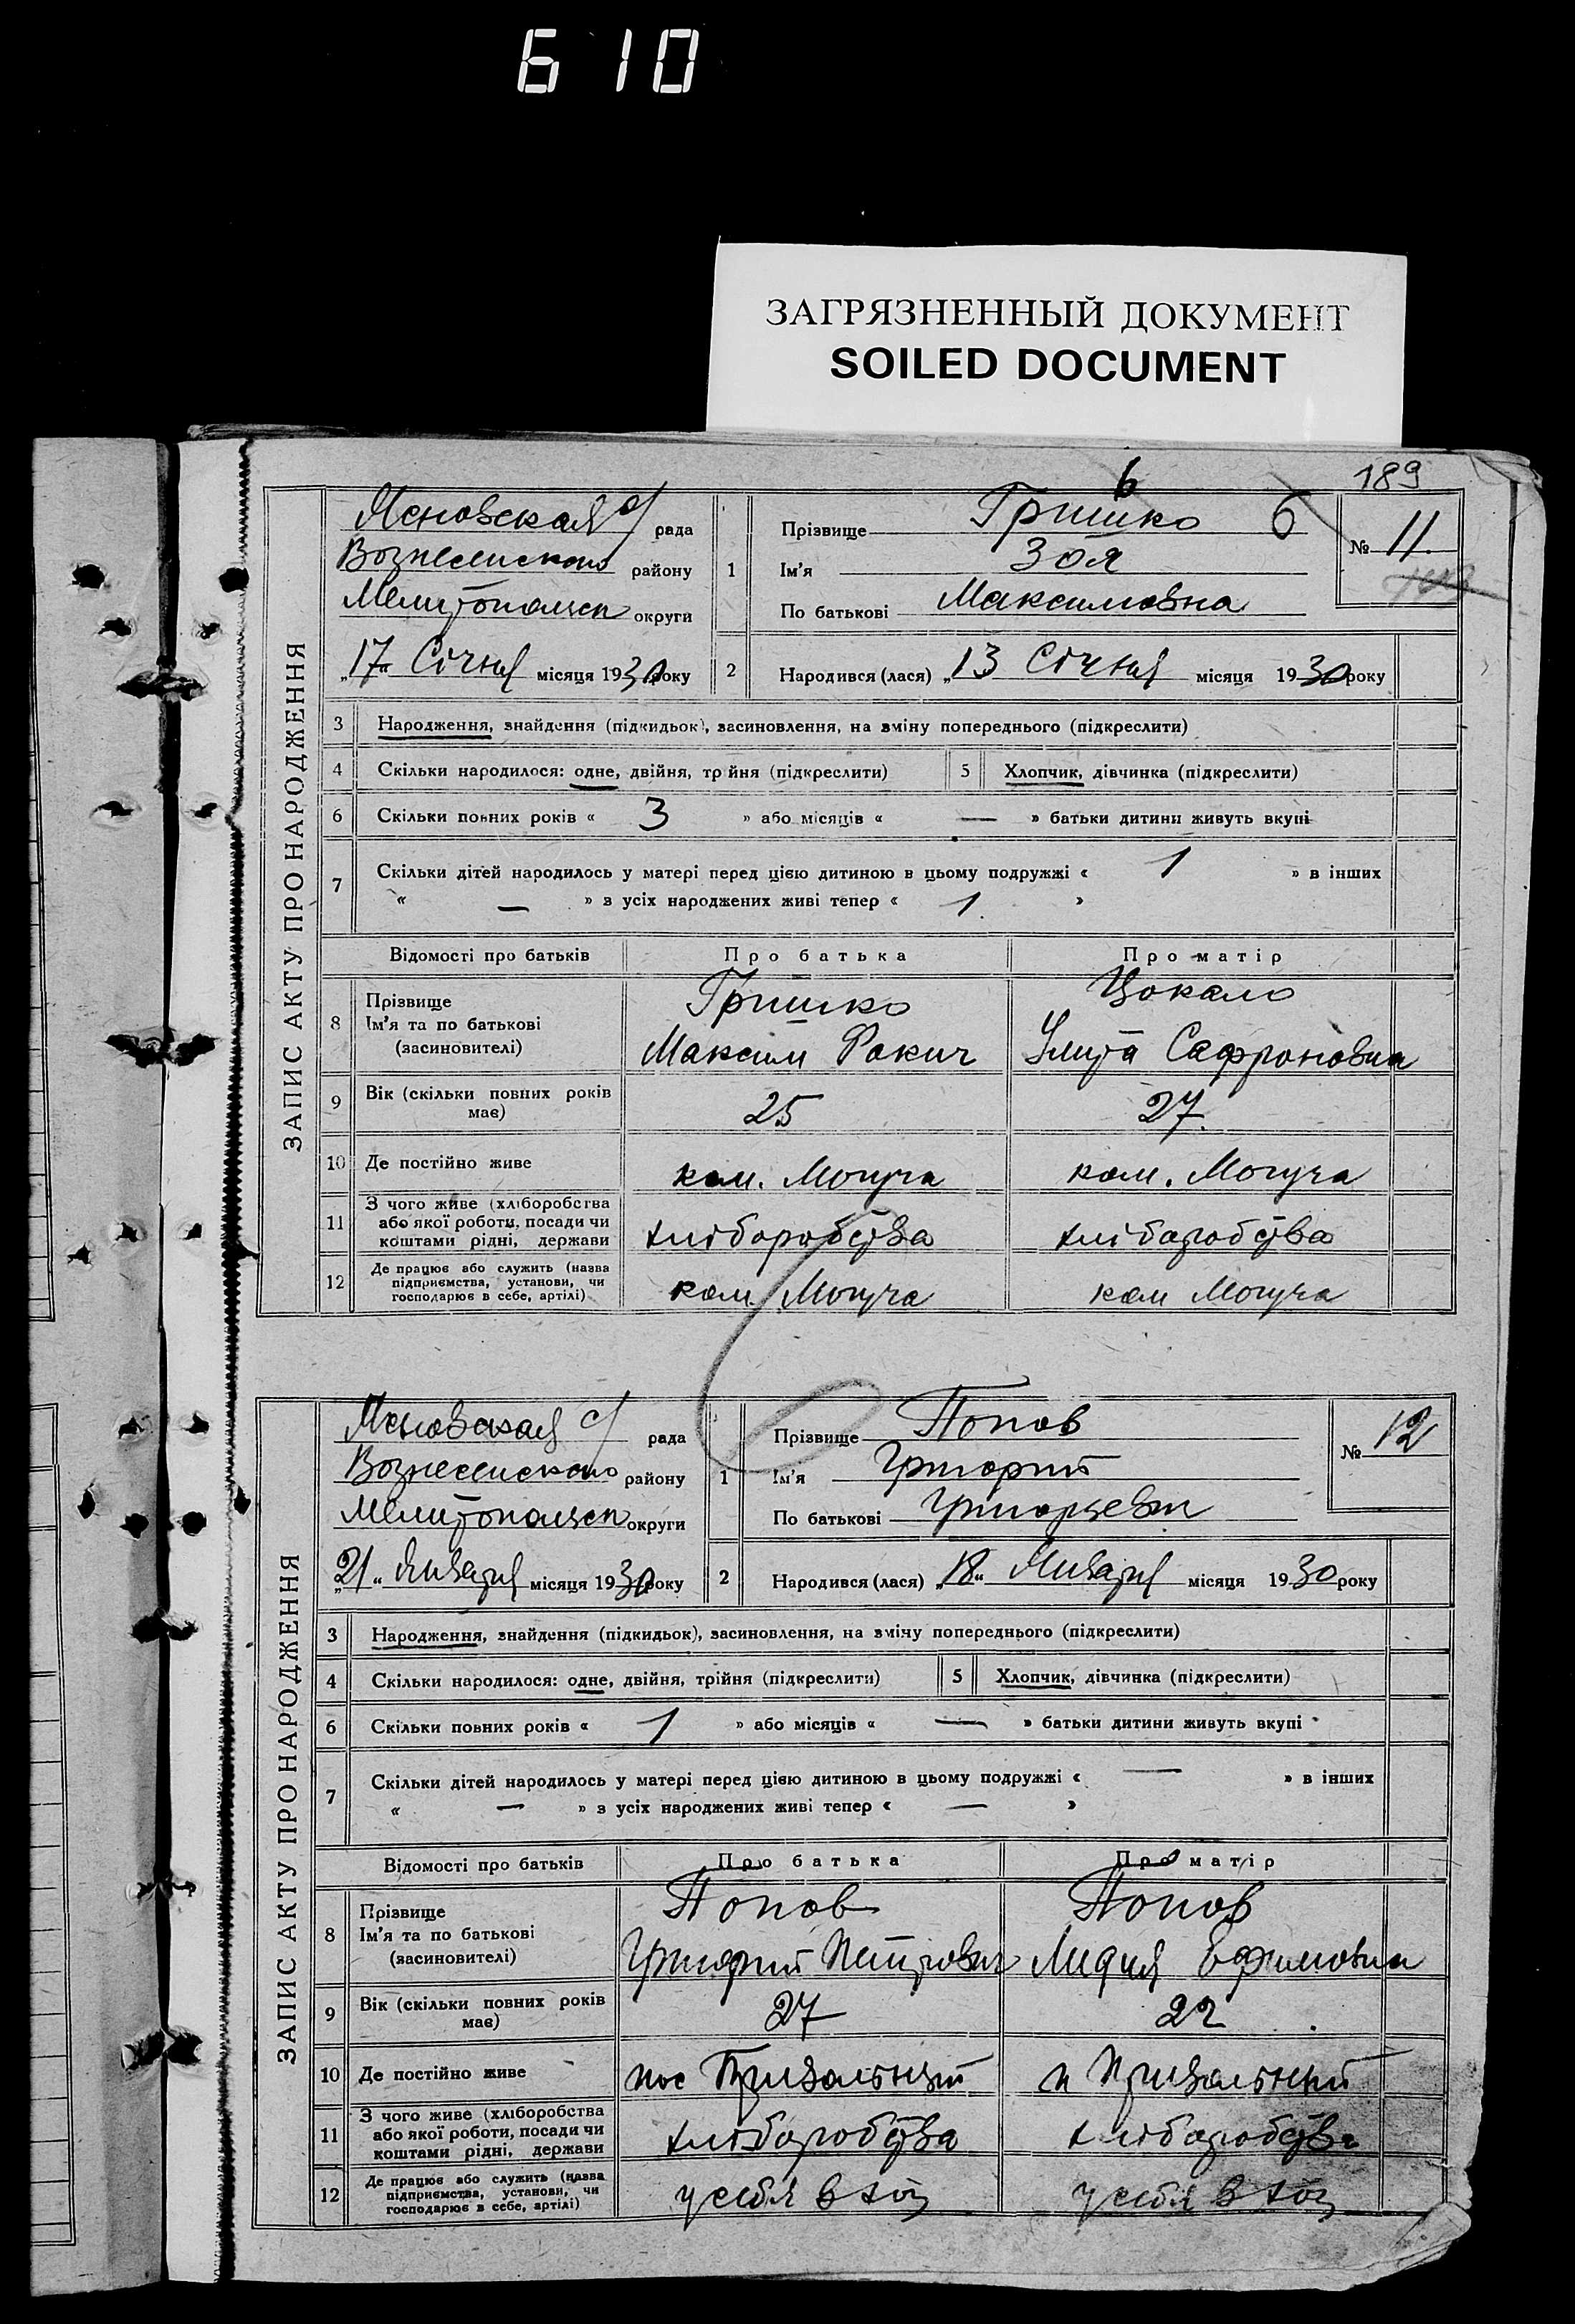 610
ЗАГРЯЗНЕННЫЙ ДОКУМЕНТ
SOILED DOCUMENT
189
6
ЗАПИС АКТУ ПРО НАРОДЖЕННЯ
рада
Вознесенского району
округи
„17“ Січня місяця 1930 року
1 Прізвище Гришко 6
Ім'я Зоя
По батькові Максимовна
№ 11.
2 Народився (лася) „13 Січня місяця 1930 року
3 Народження, знайдення (підкидьок), засиновлення, на зміну попереднього (підкреслити)
4 Скільки народилося: одне, двійня, трійня (підкреслити) 5 Хлопчик, дівчинка (підкреслити)
6 Скільки повних років « 3 » або місяців « — » батьки дитини живуть вкупі
7 Скільки дітей народилось у матері перед цією дитиною в цьому подружжі « 1 » в інших
« — » з усіх народжених живі тепер « 1 »
Відомості про батьків Про батька Про матір
8 Прізвище Гришко Цокало
Ім'я та по батькові
(засиновителі) Максим Фокич Улита Сафроновна
9 Вік (скільки повних років
має) 25 27.
10 Де постійно живе ком. Могуча ком. Могуча
11 З чого живе (хліборобства
або якої роботи, посади чи
коштами рідні, держави хліборобства хліборобства
12 Де працює або служить (назва
підприємства, установи, чи
господарює в себе, артілі) ком. Могуча ком Могуча
ЗАПИС АКТУ ПРО НАРОДЖЕННЯ
рада
Вознесенского району
округи
„21“ Января місяця 1930 року
1 Прізвище Попов
Ім'я Григорий
По батькові Григорьевич
№ 12
2 Народився (лася) „18“ Января місяця 1930 року
3 Народження, знайдення (підкидьок), засиновлення, на зміну попереднього (підкреслити)
4 Скільки народилося: одне, двійня, трійня (підкреслити) 5 Хлопчик, дівчинка (підкреслити)
6 Скільки повних років « 1 » або місяців « — » батьки дитини живуть вкупі
7 Скільки дітей народилось у матері перед цією дитиною в цьому подружжі « — » в інших
« — » з усіх народжених живі тепер « — »
Відомості про батьків Про батька Про матір
8 Прізвище Попов Попов
Ім'я та по батькові
(засиновителі) Григорий Петрович Лидия Ефимовна
9 Вік (скільки повних років
має) 27 22
10 Де постійно живе пос Привольный п Привольный
11 З чого живе (хліборобства
або якої роботи, посади чи
коштами рідні, держави хліборобства хліборобства
12 Де працює або служить (назва
підприємства, установи, чи
господарює в себе, артілі) у себя в хоз у себя в хоз